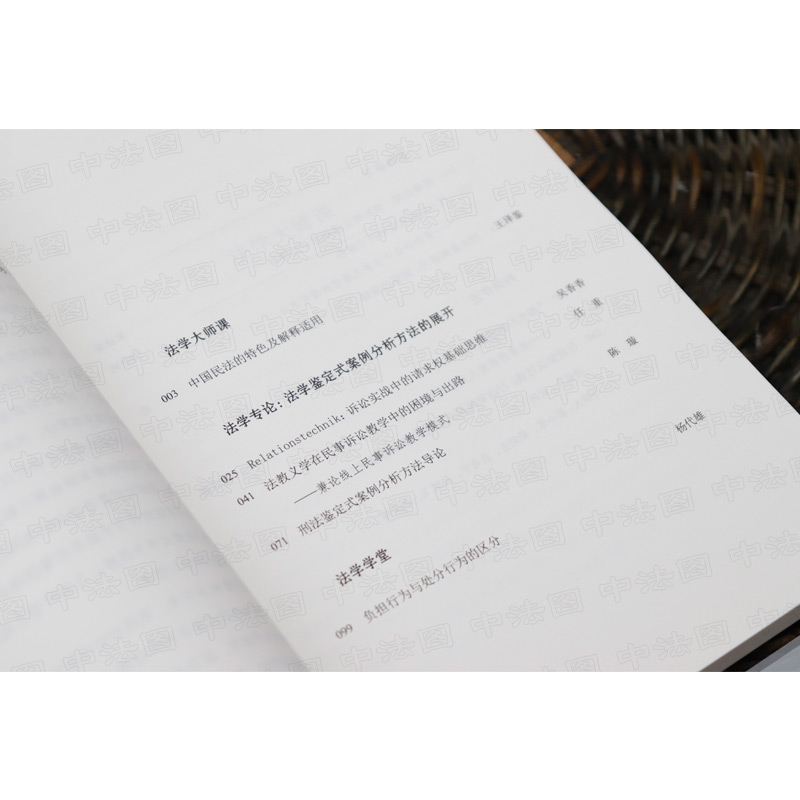 法学大师课
003 中国民法的特色及解释适用 王泽鉴
法学专论：法学鉴定式案例分析方法的展开
025 Relationstechnik：诉讼实战中的请求权基础思维 吴香香
041 法教义学在民事诉讼教学中的困境与出路 任 重
——兼论线上民事诉讼教学模式
071 刑法鉴定式案例分析方法导论 陈 璇
法学学堂
099 负担行为与处分行为的区分 杨代雄
中法图